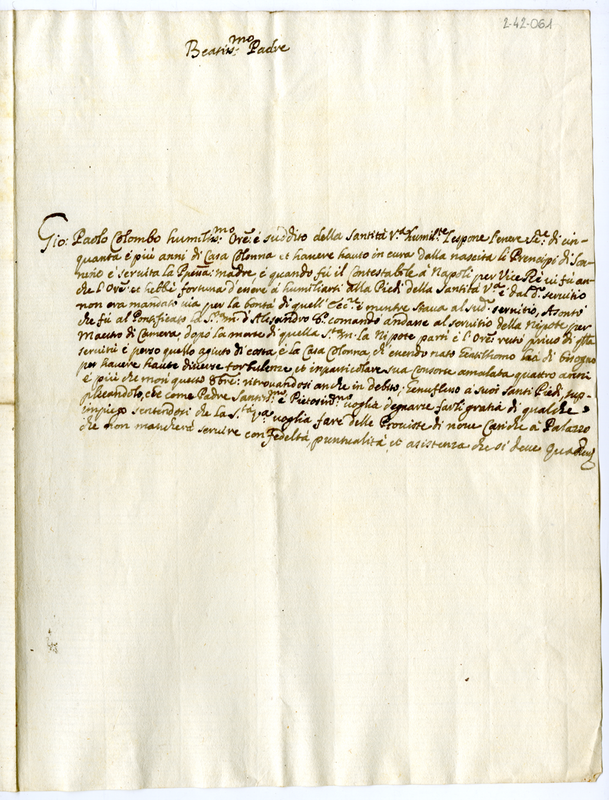 2-42-061
Beatiss.mo Padre
Gio: Paolo Colombo humiliss.mo Ore: è suddito della Santità V.a humilte l'espone essere di cin-
quanta e più anni di Casa Colonna et havere hauto in cura dalla nascita li Prencipi di Son-
nino è servita la madre, è quando fù il Contestabile à Napoli per Vice Rè vi fù an-
che l'Ore: et hebbe fortuna d'enore à humiliarsi alla Piedi della Santità V.a è dal d.o servitio
non era mandato via per la bontà di quell' è mentre stava al sud.o servitio, Montò
che fù al Pontificato la S.ta m: d'Alesandro 8.o comandò andare al servitio della Nipote per
Mastro di Camera, dopo la morte di quella S.ta m: la Nipote partì è l'Ore restò privo di
servitù è perso quello agiuto di costa è la Casa Colonna, et essendo nato Gentilhomo hà di bisogno
per havere haute diverse torbulenze et inparticolare sua Consorte amalata quattro anni
è più che morì questo 8bre: ritrovandosi anche in debito; Genuflesso a suoi Santi Piedi, sup-
plicandolo, che come Padre Santiss.mo è Pietosiss.mo voglia degnarse farli gratia di qualche
impiego sentendosi che la S.tà V.a voglia fare delle Proviste di nove Cariche à Palazzo
che non mancherà servire con Fedeltà, puntualità et asistenza che si deve